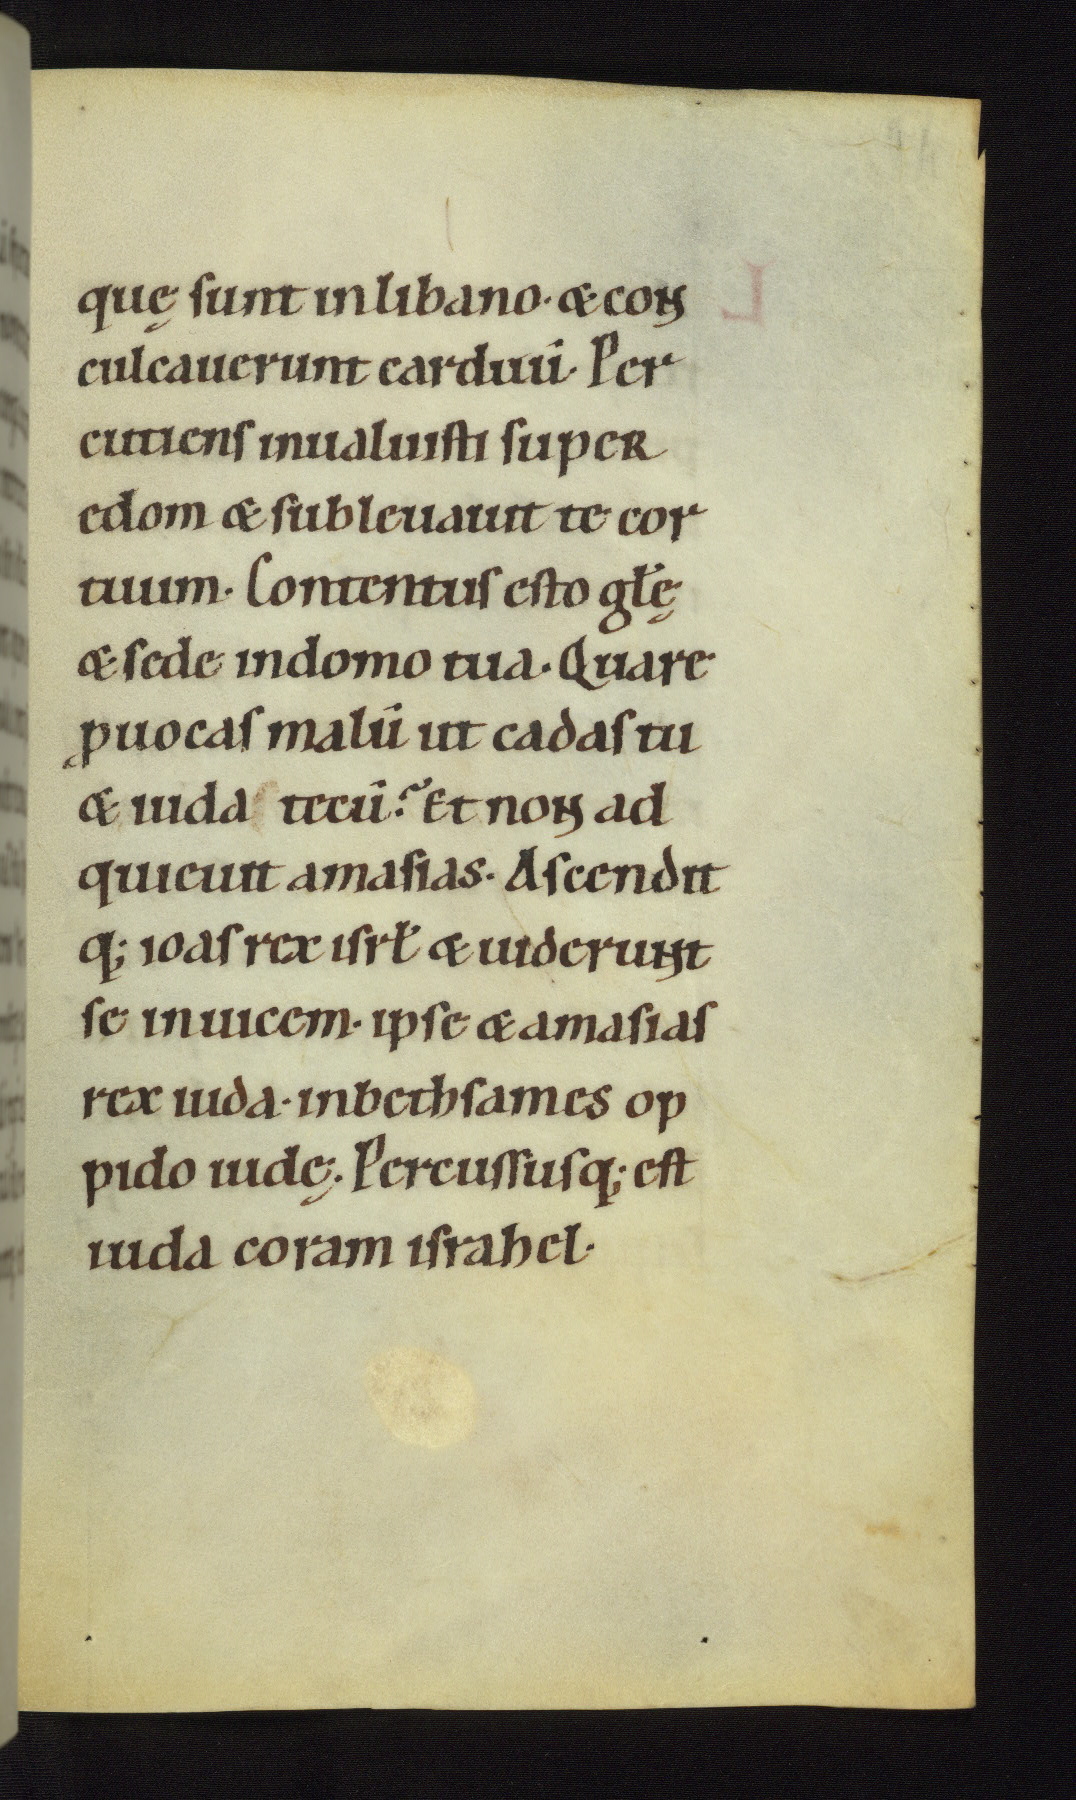 quę sunt in libano· & con
culcauerunt carduū· Per
cutiens inualuisti super
edom & subleuauit te cor
tuum· Contentus esto glę̄
& sede in domo tua· Quare
ꝓuocas malū ut cadas tu
& iuda tecū? Et non ad
quieuit amasias· Ascendit
q; ioas rex isrl̄ & uiderunt
se inuicem· ipse & amasias
rex iuda· in bethsames op
pido iudę· Percussusq; est
iuda coram israhel·